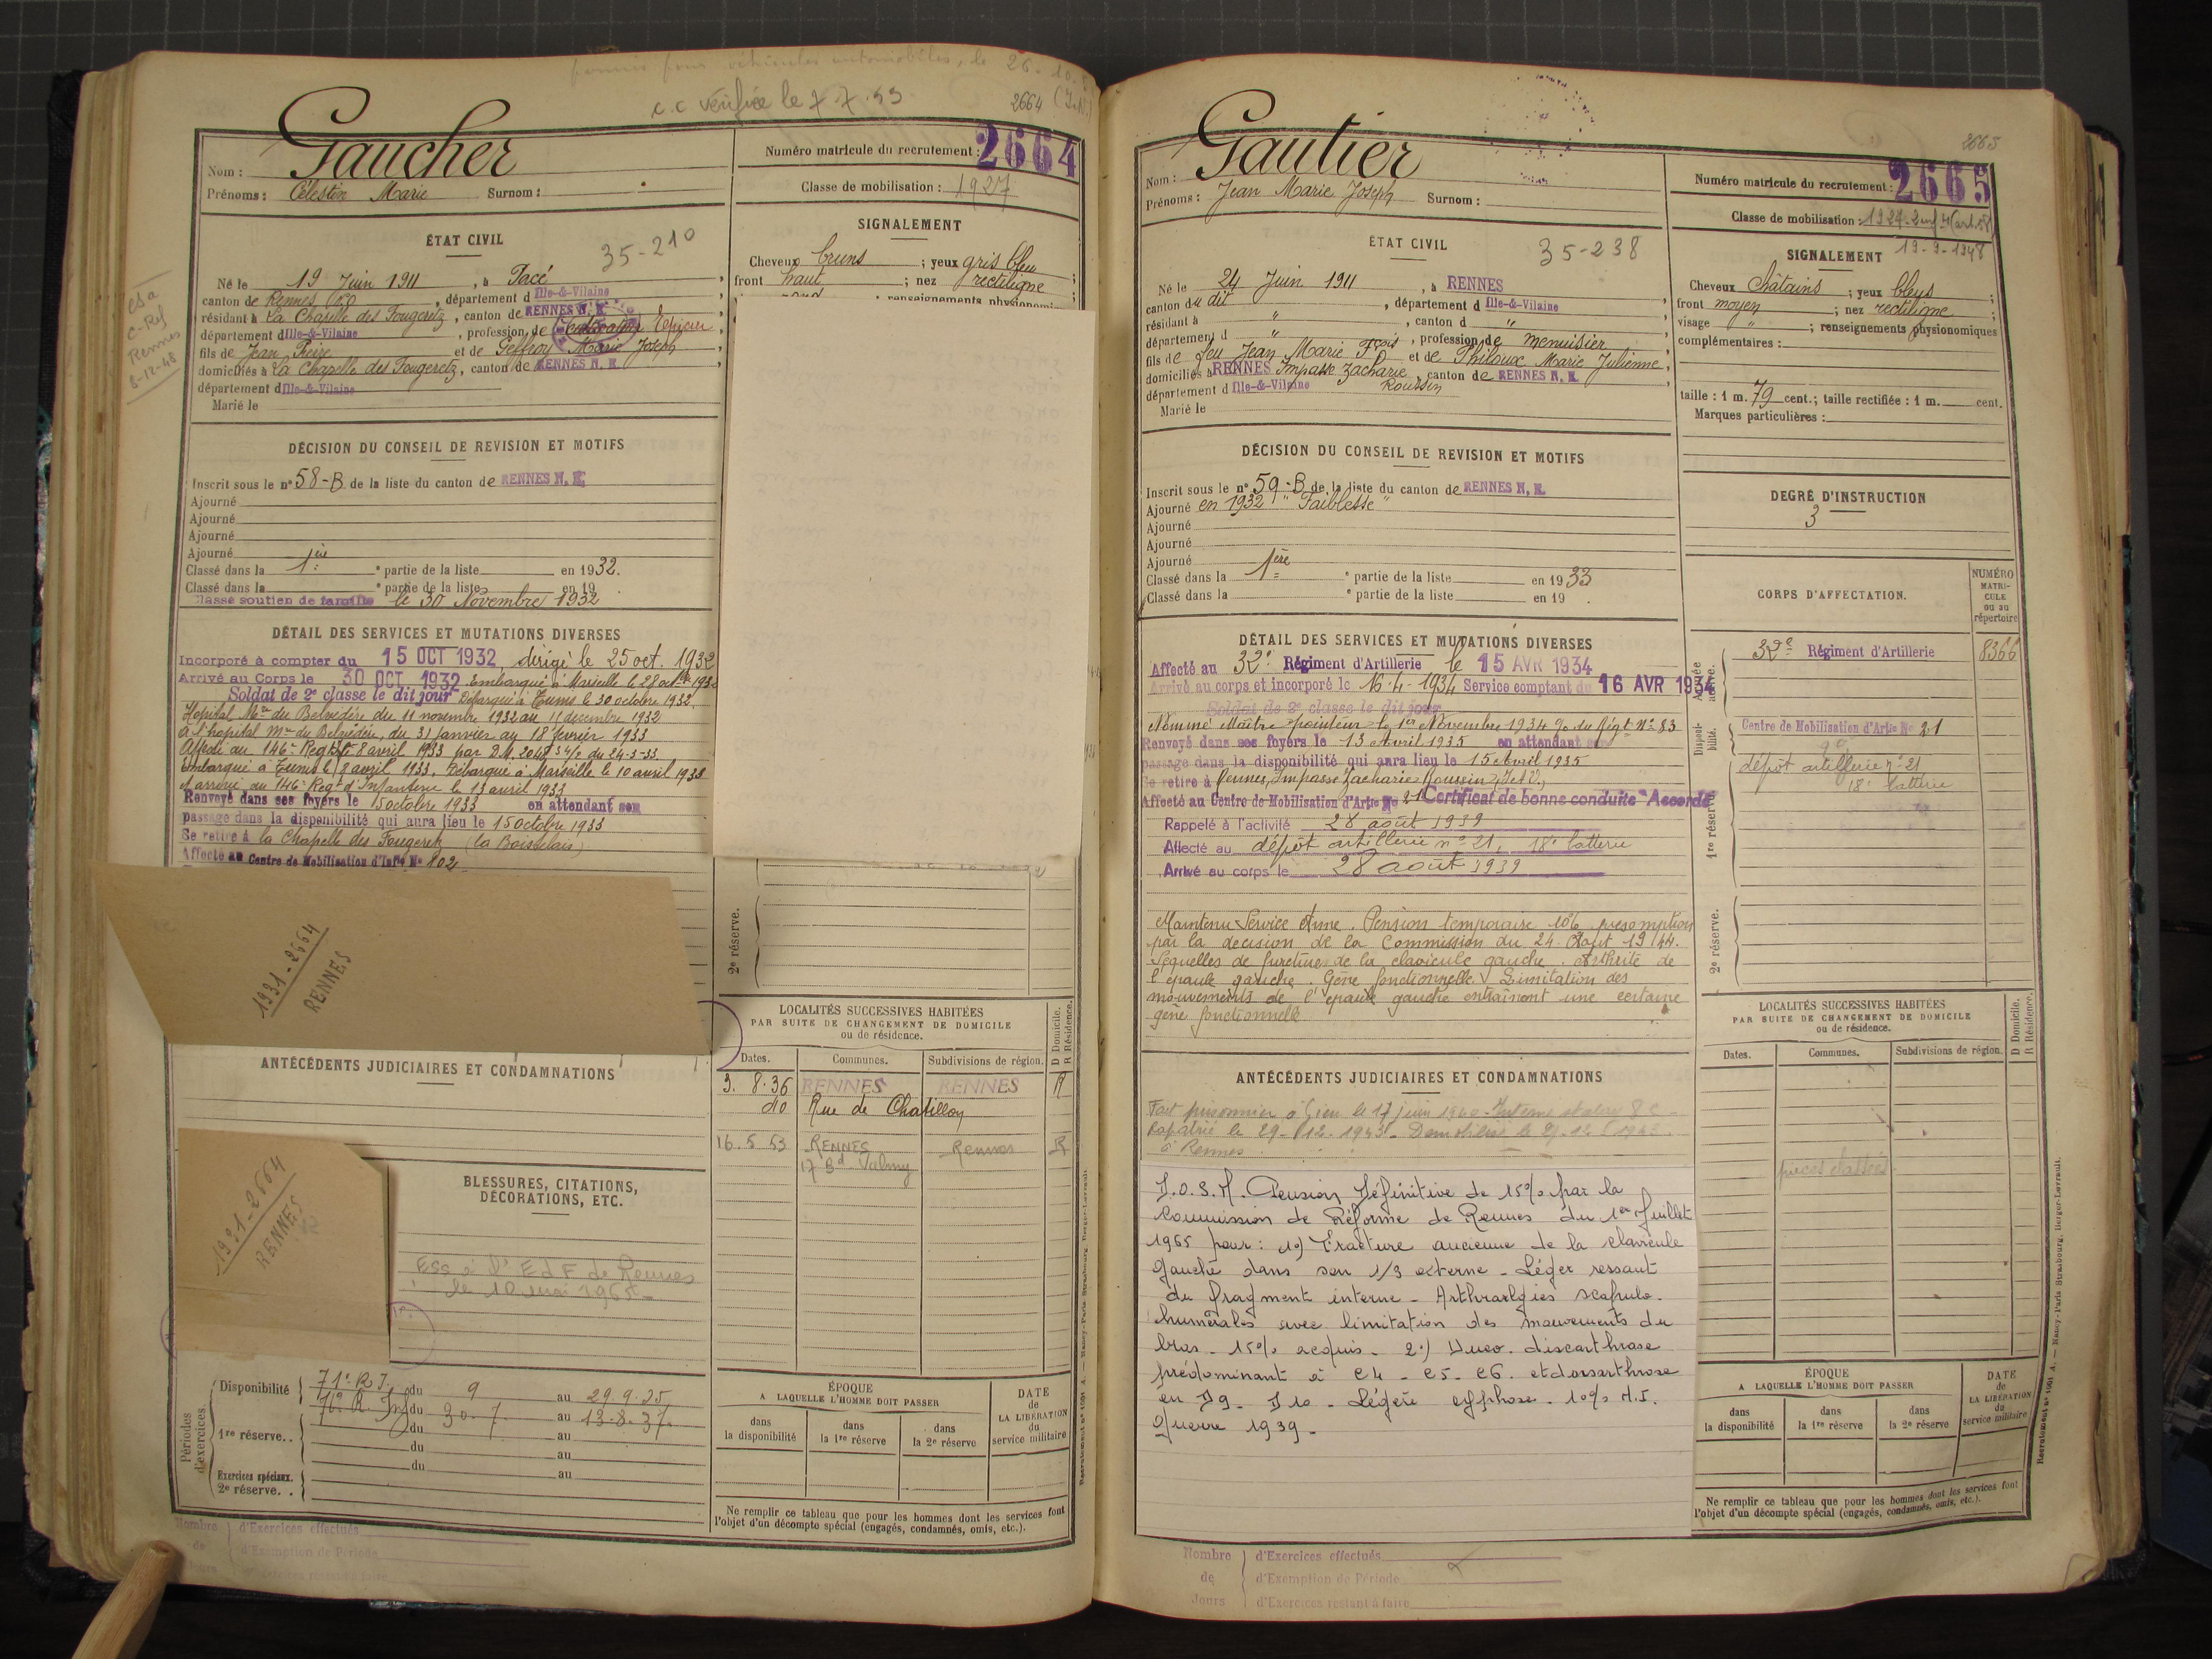 permis pour véhicules automobiles, le 26.10.
c.c vérifiée le 7.7.53
2664
Nom : Gaucher
Prénoms : Célestin Marie Surnom :
Numéro matricule du recrutement : 2664
Classe de mobilisation : 1927
ÉTAT CIVIL
35-210
Né le 19 Juin 1911, à Pacé
canton de Rennes, département d Ille-&-Vilaine
résidant à La Chapelle des Fougeretz, canton de RENNES N. E.
département d Ille-&-Vilaine, profession de Epicier
fils de Jean Pierre et de Geffroy Marie Joseph
domiciliés à La Chapelle des Fougeretz, canton de RENNES N. E.
département d Ille-&-Vilaine
Marié le
C-Ref
Rennes
8-12-48
SIGNALEMENT
Cheveux bruns ; yeux gris bleu ;
front haut ; nez rectiligne ;
DÉCISION DU CONSEIL DE REVISION ET MOTIFS
Inscrit sous le n° 58-B de la liste du canton de RENNES N. E.
Ajourné
Ajourné
Ajourné
Ajourné
Classé dans la 1ère partie de la liste en 1932.
Classé dans la e partie de la liste en 19
Classé soutien de famille le 30 Novembre 1932
DÉTAIL DES SERVICES ET MUTATIONS DIVERSES
Incorporé à compter du 15 OCT 1932, dirigé le 25 oct. 1932
Arrivé au Corps le 30 OCT. 1932 Embarqué à Marseille le 28 octbre 1932
Soldat de 2e classe le dit jour Débarqué à Tunis le 30 octobre 1932,
Hopital Mre du Belvédère du 11 novembre 1932 au 11 décembre 1932
à l'hopital Mre du Belvédère, du 31 janvier au 18 février 1933
Affecté au 146e Regt 8 avril 1933 par D.M. 2048 du 24-3-33
Embarqué à Tunis le 8 avril 1933. Débarqué à Marseille le 10 avril 1933
et arrivé au 146e Regt d'Infanterie le 13 avril 1933
Renvoyé dans ses foyers le 15 octobre 1933 en attendant son
passage dans la disponibilité qui aura lieu le 15 octobre 1933
Se retire à la Chapelle des Fougeretz (la Boisselais)
Affecté au Centre de Mobilisation d'Infie N° 402
1931-2664
RENNES
ANTÉCÉDENTS JUDICIAIRES ET CONDAMNATIONS
1931-2664
RENNES
BLESSURES, CITATIONS,
DÉCORATIONS, ETC.
ESS à l'EdF de Rennes
le 10 mai 1965
2e réserve.
LOCALITÉS SUCCESSIVES HABITÉES
PAR SUITE DE CHANGEMENT DE DOMICILE
ou de résidence.
D Domicile.
R Résidence.
Dates. Communes. Subdivisions de région.
3.8.36 RENNES RENNES R
do Rue de Chatillon
16.5.53 RENNES Rennes R
17 Bd Valmy
Périodes d'exercices.
Disponibilité 71e R.I. du 9 au 29.9.35
1re réserve.. du 30.7 au 13.8.37.
du au
du au
du au
Exercices spéciaux.
2e réserve. .
ÉPOQUE
A LAQUELLE L'HOMME DOIT PASSER
dans la disponibilité
dans la 1re réserve
dans la 2e réserve
DATE de LA LIBÉRATION du service militaire
Ne remplir ce tableau que pour les hommes dont les services font
l'objet d'un décompte spécial (engagés, condamnés, omis, etc.).
Nombre de Jours
d'Exercices effectués
d'Exemption de Période
d'Exercices restant à faire
2665
Nom : Gautier
Prénoms : Jean Marie Joseph Surnom :
Numéro matricule du recrutement : 2665
Classe de mobilisation : 1927-2enf
19-9-1948
ÉTAT CIVIL
35-238
Né le 24 Juin 1911, à RENNES
canton du dit, département d Ille-&-Vilaine
résidant à ", canton d "
département d ", profession de menuisier
fils de feu Jean Marie Fçois et de Philoux Marie Julienne
domiciliés à RENNES Impasse Zacharie Roussin, canton de RENNES N. E.
département d Ille-&-Vilaine
Marié le
SIGNALEMENT
Cheveux Châtains ; yeux bleus ;
front moyen ; nez rectiligne ;
visage " ; renseignements physionomiques
complémentaires :
taille : 1 m. 79 cent.; taille rectifiée : 1 m. cent.
Marques particulières :
DÉCISION DU CONSEIL DE REVISION ET MOTIFS
Inscrit sous le n° 59-B de la liste du canton de RENNES N. E.
Ajourné en 1932 "Faiblesse"
Ajourné
Ajourné
Ajourné
Classé dans la 1ère partie de la liste en 1933
Classé dans la e partie de la liste en 19 .
DEGRÉ D'INSTRUCTION
3
CORPS D'AFFECTATION.
NUMÉRO MATRI-CULE ou au répertoire
32e Régiment d'Artillerie 8366
Centre de Mobilisation d'Artie N° 21
dépôt artillerie n° 21
18e batterie
Armée active.
Disponibilité.
1re réserve.
2e réserve.
DÉTAIL DES SERVICES ET MUTATIONS DIVERSES
Affecté au 32e Régiment d'Artillerie le 15 AVR 1934
Arrivé au corps et incorporé le 16-4-1934 Service comptant du 16 AVR 1934
Soldat de 2e classe le dit jour
Nommé Maître pointeur le 1er Novembre 1934 O/ du Régt N° 83
Renvoyé dans ses foyers le 13 Avril 1935 en attendant son
passage dans la disponibilité qui aura lieu le 15 Avril 1935
Se retire à Rennes, Impasse Zacharie Roussin
Affecté au Centre de Mobilisation d'Artie N° 21 Certificat de bonne conduite "Accordé"
Rappelé à l'activité 28 août 1939
Affecté au dépôt artillerie n° 21, 18e batterie
Arrivé au corps le 28 août 1939
Maintenu Service Armé. Pension temporaire 10% présomption
par la décision de la Commission du 24 Août 1944.
Séquelles de fracture de la clavicule gauche. Arthrite de
l'épaule gauche. Gêne fonctionnelle. Limitation des
mouvements de l'épaule gauche entrainant une certaine
gêne fonctionnelle
ANTÉCÉDENTS JUDICIAIRES ET CONDAMNATIONS
Fait prisonnier à Gien le 17 juin 1940 - Interné stalag 8 C -
Rapatrié le 29-12-1943 - Démobilisé le
à Rennes
I.O.S.M. Pension Définitive de 15% par la
Commission de Réforme de Rennes du 1er Juillet
1965 pour : 1°) Fracture ancienne de la clavicule
gauche dans son 1/3 externe - Léger ressaut
du fragment interne - Arthralgies scapulo-
humérales avec limitation des mouvements du
bras - 15% acquis - 2°) Unco-discarthrose
prédominant à C4 - C5 - C6. et dorsarthrose
en D9 - D10 - Légère cyphose. 10% M.I.
Guerre 1939 -
LOCALITÉS SUCCESSIVES HABITÉES
PAR SUITE DE CHANGEMENT DE DOMICILE
ou de résidence.
D Domicile.
R Résidence.
Dates. Communes. Subdivisions de région.
pièces classées
ÉPOQUE
A LAQUELLE L'HOMME DOIT PASSER
dans la disponibilité
dans la 1re réserve
dans la 2e réserve
DATE de LA LIBÉRATION du service militaire
Ne remplir ce tableau que pour les hommes dont les services font
l'objet d'un décompte spécial (engagés, condamnés, omis, etc.).
Nombre de Jours
d'Exercices effectués
d'Exemption de Période
d'Exercices restant à faire
Recrutement n° 1001 A. — Nancy-Paris-Strasbourg. Berger-Levrault.